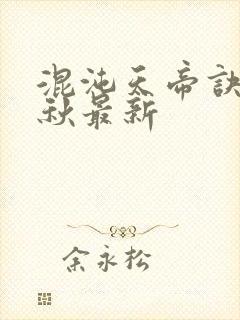 混沌天帝訣
秋最新
余永松